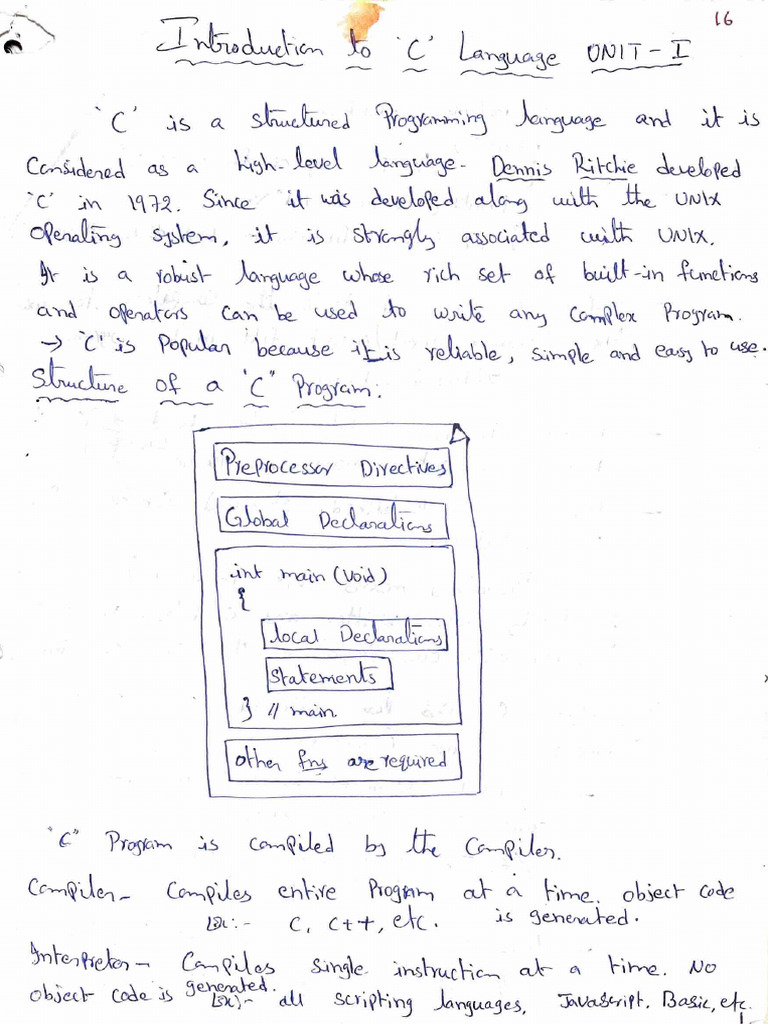 16
Introduction to 'C' Language UNIT-I
'C' is a structured Programming language and it is
Considered as a high-level language. Dennis Ritchie developed
'C' in 1972. Since it was developed along with the UNIX
operating system, it is strongly associated with UNIX.
It is a robust language whose rich set of built-in functions
and operators can be used to write any Complex Program.
→ 'C' is Popular because it is reliable, simple and easy to use.
Structure of a "C" Program.
Preprocessor Directives
Global Declarations
int main (void)
{
local Declarations
Statements
} // main
other fns are required
"C" Program is compiled by the Compiler.
Compiler- Compiles entire Program at a time. object code
Ex:- C, C++, etc. is generated.
Interpreter- Compiles single instruction at a time. NO
object code is generated.
Ex:- all scripting languages, JavaScript. Basic, etc.